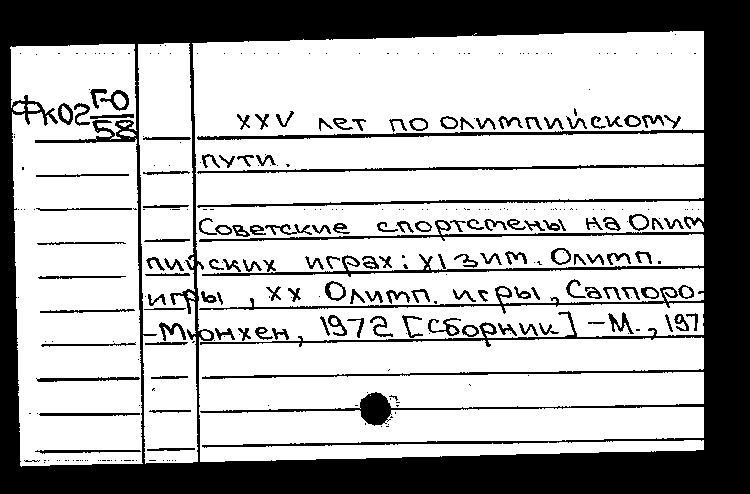 ФК02 Г-0
58
XXV лет по олимпийскому
пути.
Советские спортсмены на Олим
пийских играх: XI зим. Олимп.
игры, XX Олимп. игры, Саппоро-
-Мюнхен, 1972 [Сборник] - М., 197